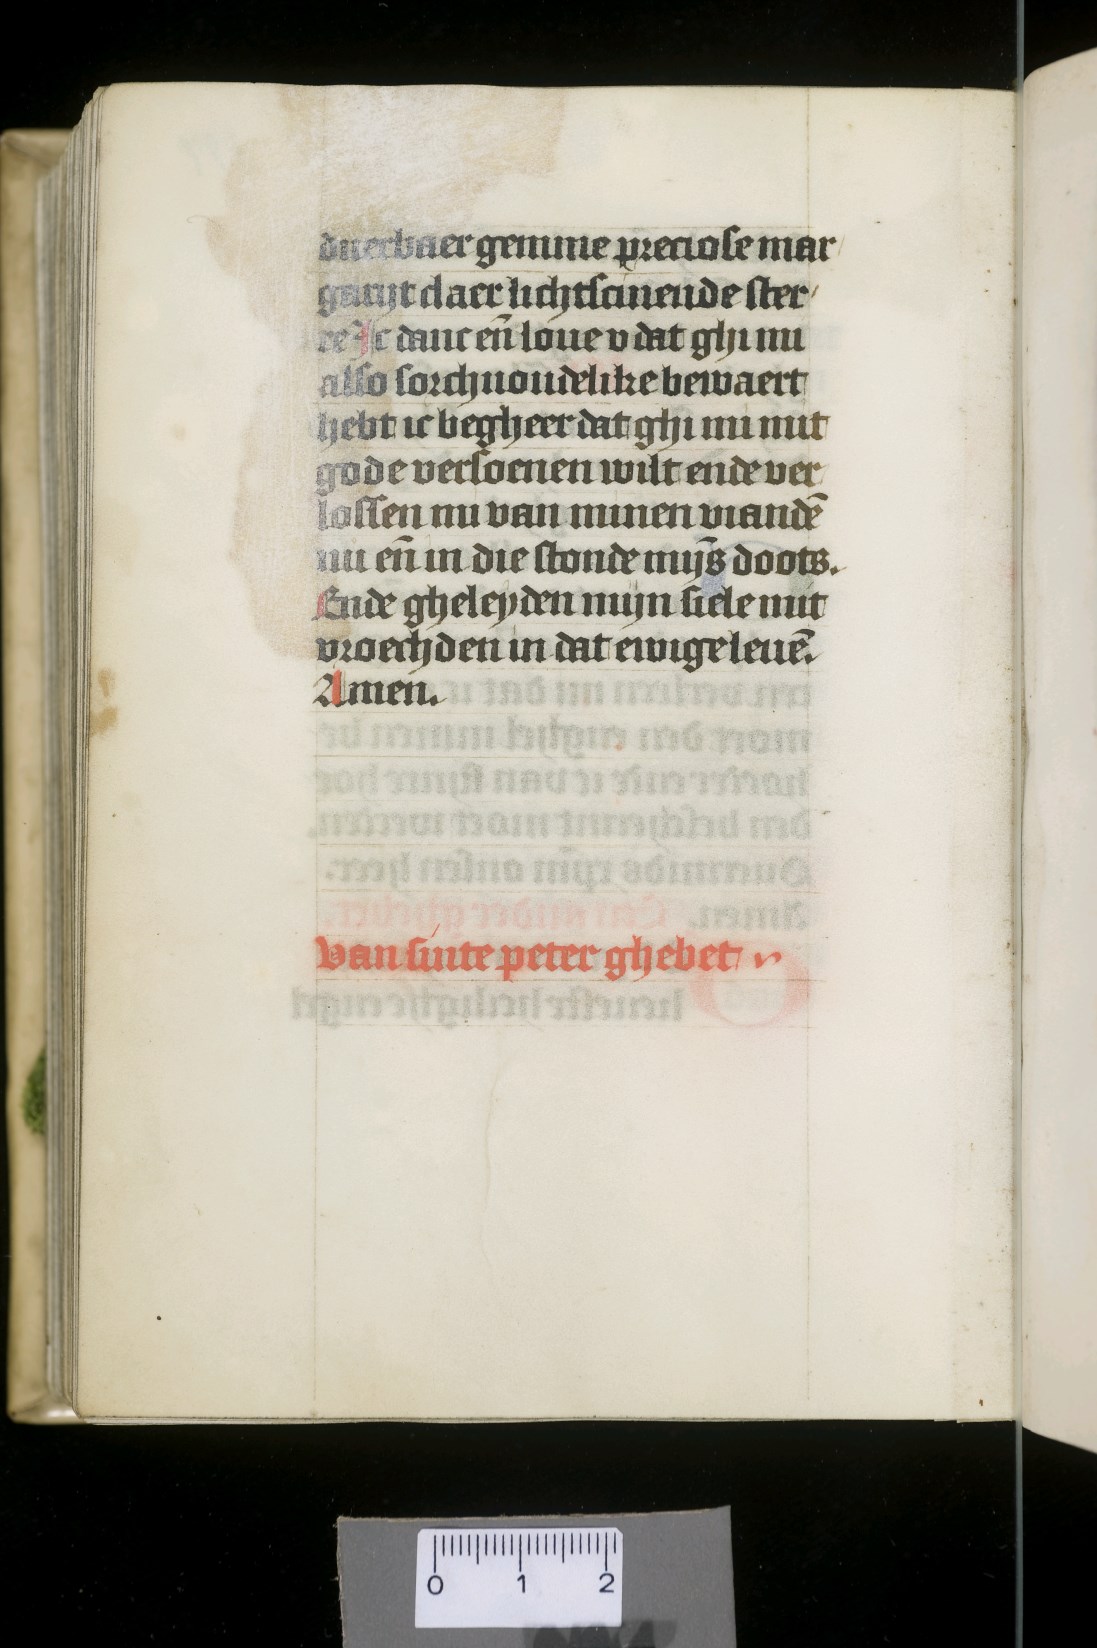 duerbaer gemme preciose mar
garijt claer lichtscinende ster
re Ic danc en̄ loue v dat ghi mi
also sorchuoudelike bewaert
hebt ic begheer dat ghi mi mit
gode versoenen wilt ende ver
lossen mi van minen viandē
nu en̄ in die stonde mijs̄ doots.
Ende gheleyden mijn siele mit
vroechden in dat ewige leuē.
Amen.
Van sinte peter ghebet
0 1 2